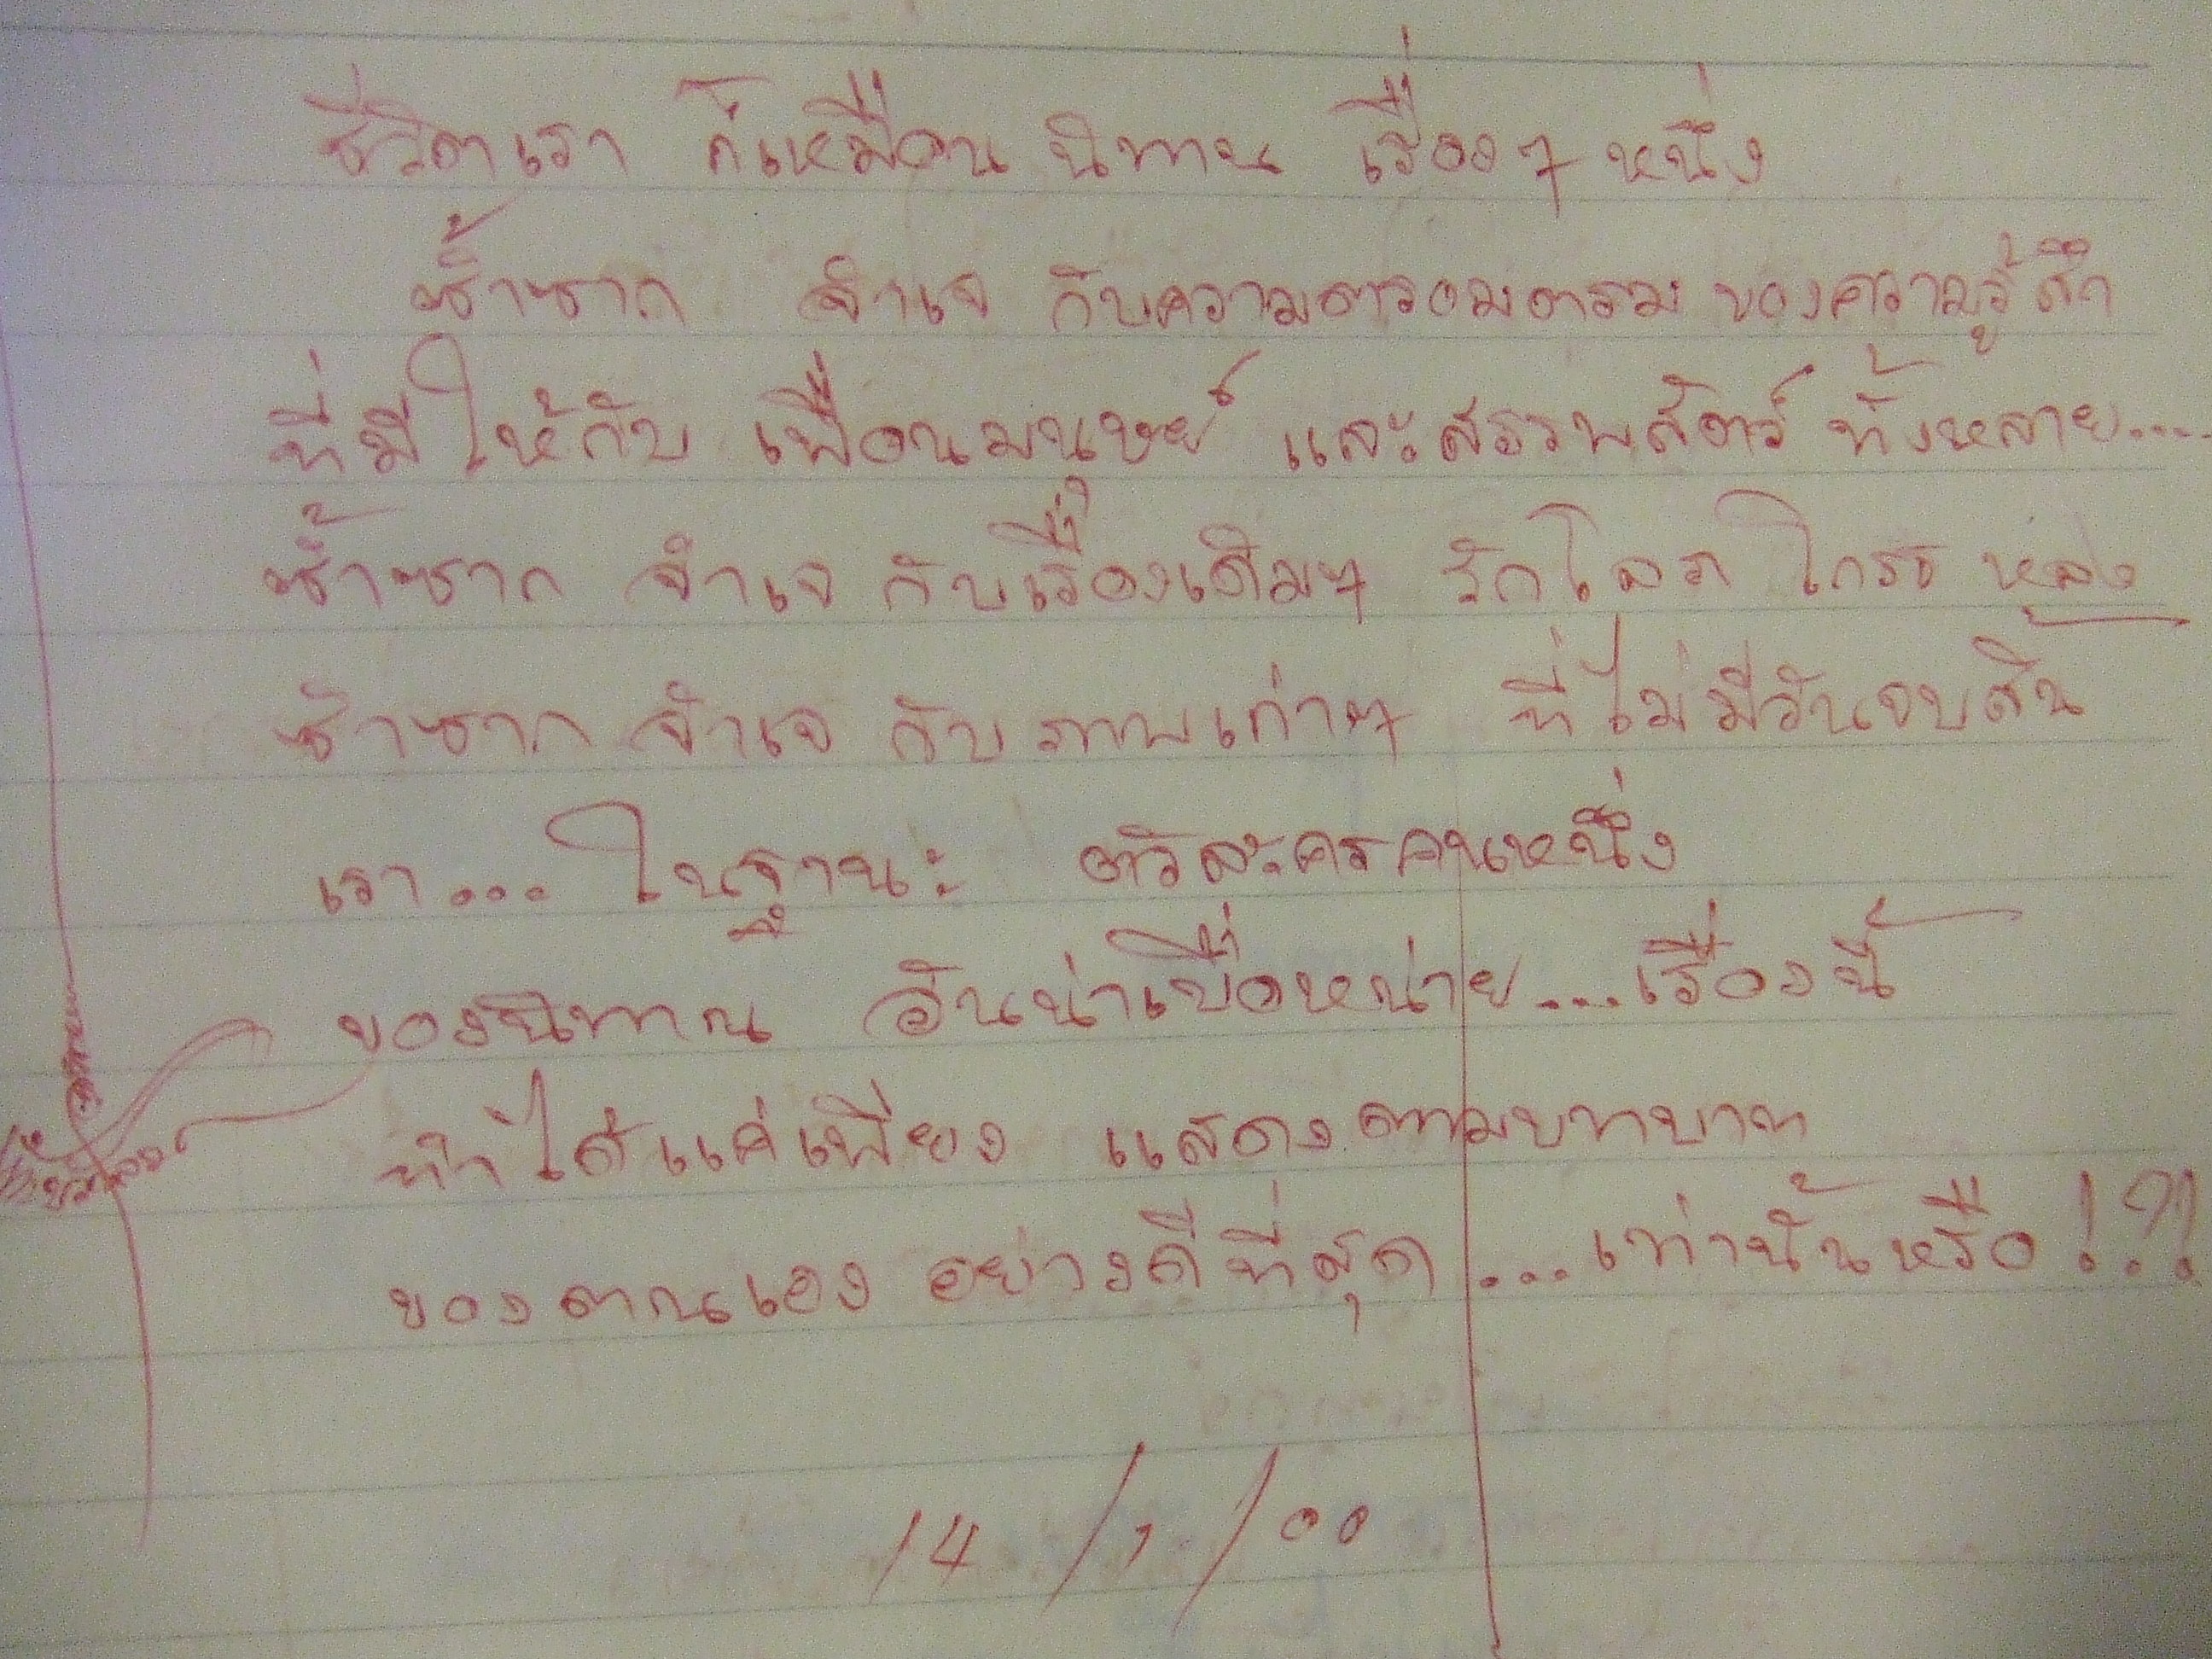 ชีวิตเรา ก็เหมือน นิทาน เรื่องๆ หนึ่ง
ซ้ำซาก จำเจ กับความตรอมตรม ของความรู้สึก
ที่มี ให้กับ เพื่อนมนุษย์ และสรรพสัตว์ ทั้งหลาย....
ซ้ำซาก จำเจ กับเรื่องเดิมๆ รัก โลภ โกรธ หลง
ซ้ำซาก จำเจ กับ ภาพเก่าๆ ที่ไม่มีวันจบสิ้น
เรา... ในฐานะ ตัวละครคนหนึ่ง
ของนิทาน อันน่าเบื่อหน่าย...เรื่องนี้
ทำได้แค่เพียง แสดงตามบทบาท
ของตนเอง อย่างดีที่สุด...เท่านั้นหรือ!?!
14/1/00